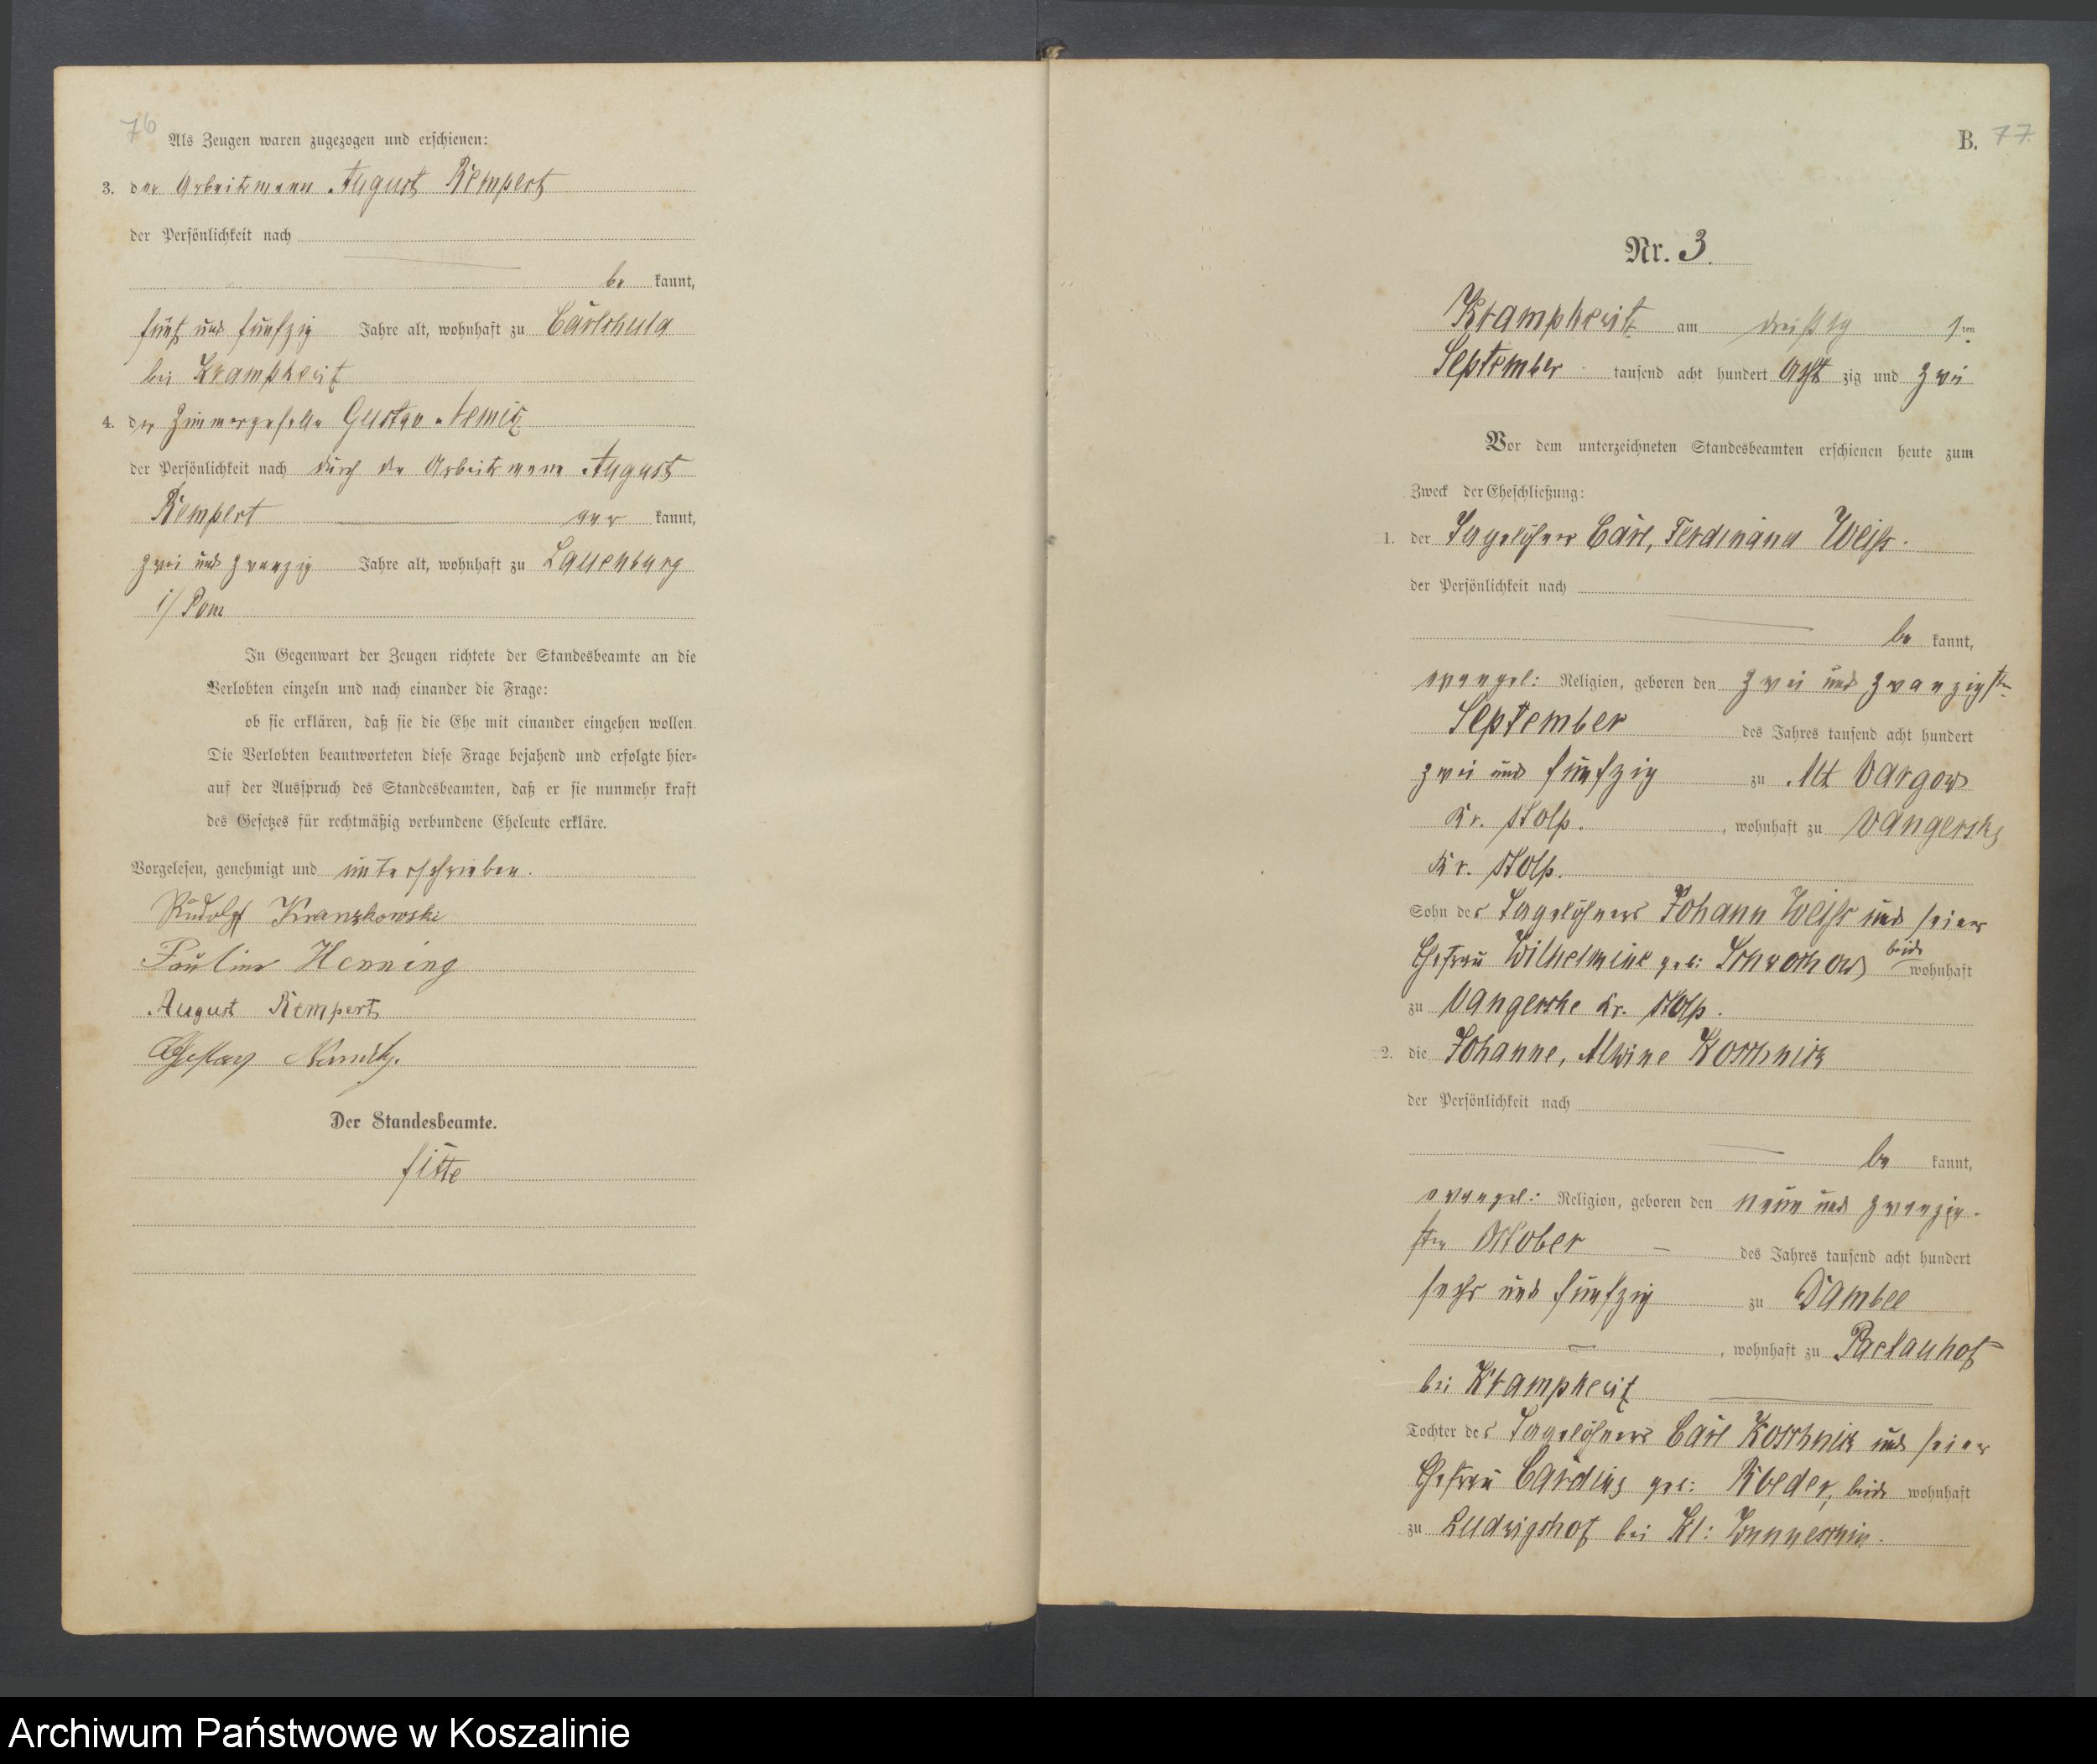 76
Als Zeugen waren zugezogen und erschienen:
3. der Arbeitsmann August Rempert
der Persönlichkeit nach
be kannt,
fünf und fünfzig Jahre alt, wohnhaft zu
bei Krampkewitz
4. der Zimmergeselle Gustav Nemitz
der Persönlichkeit nach durch den Arbeitsmann August
Rempert aner kannt,
zwei und zwanzig Jahre alt, wohnhaft zu Lauenburg
i/ Pom
In Gegenwart der Zeugen richtete der Standesbeamte an die
Verlobten einzeln und nach einander die Frage:
ob sie erklären, daß sie die Ehe mit einander eingehen wollen
Die Verlobten beantworteten diese Frage bejahend und erfolgte hier-
auf der Ausspruch des Standesbeamten, daß er sie nunmehr kraft
des Gesetzes für rechtmäßig verbundene Eheleute erkläre.
Vorgelesen, genehmigt und unterschrieben.
Rudolf Kranzkowski
Pauline Henning
August Rempert
Gustav Nemitz.
Der Standesbeamte.
B. 77
Nr. 3.
Krampkewitz am dreißig sten
September tausend acht hundert acht zig und zwei
Vor dem unterzeichneten Standesbeamten erschienen heute zum
Zweck der Eheschließung:
1. der Tagelöhner Carl, Ferdinand Weiß.
der Persönlichkeit nach
be kannt,
evangel: Religion, geboren den zwei und zwanzigsten
September des Jahres tausend acht hundert
zwei und fünfzig zu Alt Vargow
Kr. Stolp. , wohnhaft zu Vangerske
Kr. Stolp.
Sohn des Tagelöhners Johann Weiß und seiner
Ehefrau Wilhelmine geb: Schwochow beide wohnhaft
zu Vangerske Kr. Stolp.
2. die Johanne, Alwine Koschnick
der Persönlichkeit nach
be kannt,
evangel: Religion, geboren den neun und zwanzig-
sten Oktober des Jahres tausend acht hundert
sechs und fünfzig zu Dambee
, wohnhaft zu
bei Krampkewitz
Tochter des Tagelöhners Carl Koschnick und seiner
Ehefrau geb: Roeder, beide wohnhaft
zu Ludwigshof bei Kl:
Archiwum Państwowe w Koszalinie